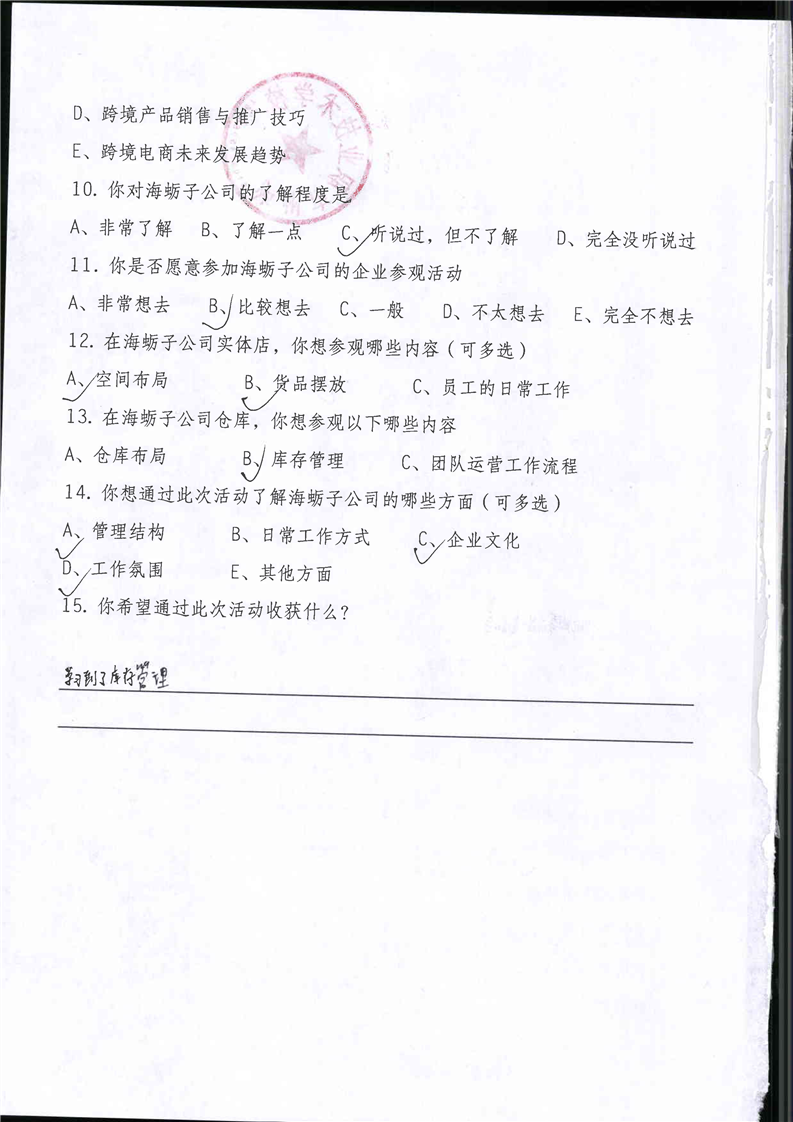 D、跨境产品销售与推广技巧
E、跨境电商未来发展趋势
10. 你对海蛎子公司的了解程度是
A、非常了解 B、了解一点 C、听说过，但不了解 D、完全没听说过
11. 你是否愿意参加海蛎子公司的企业参观活动
A、非常想去 B、比较想去 C、一般 D、不太想去 E、完全不想去
12. 在海蛎子公司实体店，你想参观哪些内容（可多选）
A、空间布局 B、货品摆放 C、员工的日常工作
13. 在海蛎子公司仓库，你想参观以下哪些内容
A、仓库布局 B、库存管理 C、团队运营工作流程
14. 你想通过此次活动了解海蛎子公司的哪些方面（可多选）
A、管理结构 B、日常工作方式 C、企业文化
D、工作氛围 E、其他方面
15. 你希望通过此次活动收获什么？
学习到了库存管理